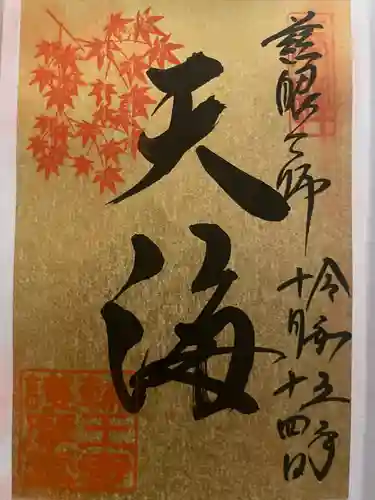 慈眼大師
令和五年
十月十四日
天海